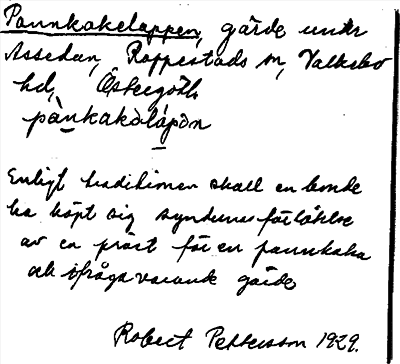 Pannkakelappen, gärde under
Assedan, Rappestads sn, Valkebo
hd, Östergötl.
pànkakəlápən
Enligt traditionen skall en bonde
ha köpt sig syndernas förlåtelse
av en präst för en pannkaka
och ifrågavarande gärde
Robert Pettersson 1929.